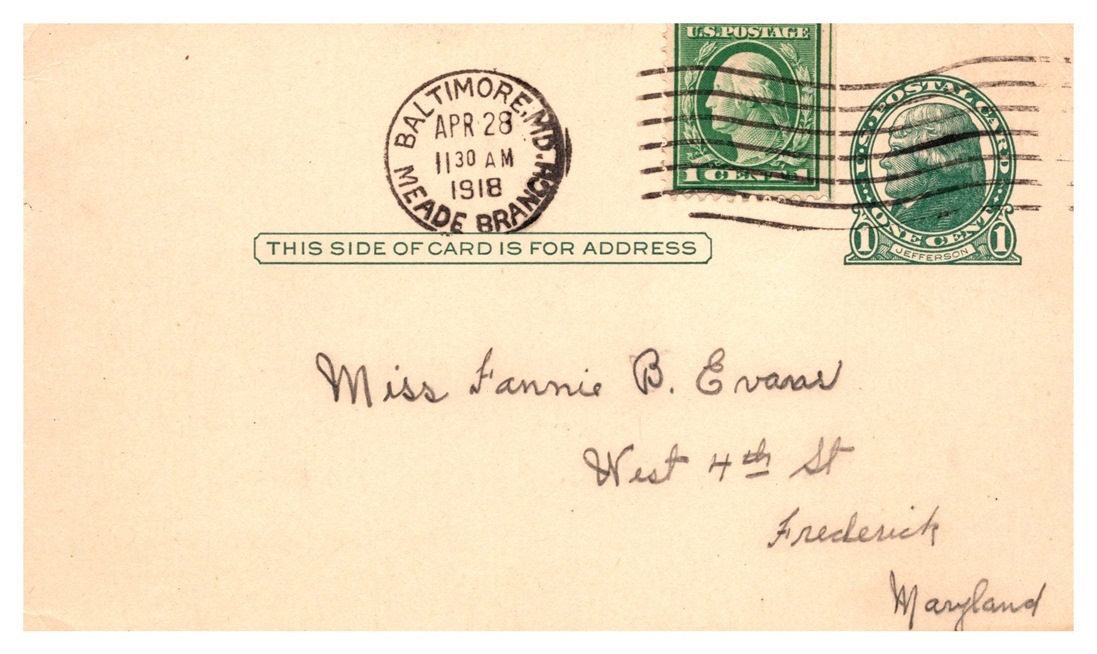 U.S. POSTAGE
1 CENT 1
BALTIMORE, MD.
APR 28
11 30 AM
1918
MEADE BRANCH.
U.S. POSTAL CARD
ONE CENT
1 JEFFERSON 1
THIS SIDE OF CARD IS FOR ADDRESS
Miss Fannie B. Evans
West 4th St
Frederick
Maryland